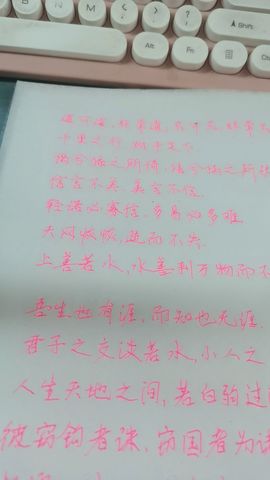 Shift
Alt
Fn
Pn
道可道,非常道,名可名,非常
千里之行 始于足下
祸兮福之所倚,福兮祸之所
信言不美,美言不信
轻诺必寡信,多易必多难
天网恢恢,疏而不失
上善若水,水善利万物而不
吾生也有涯,而知也无涯.
君子之交淡若水,小人之
人生天地之间,若白驹过
彼窃钩者诛,窃国者为诸